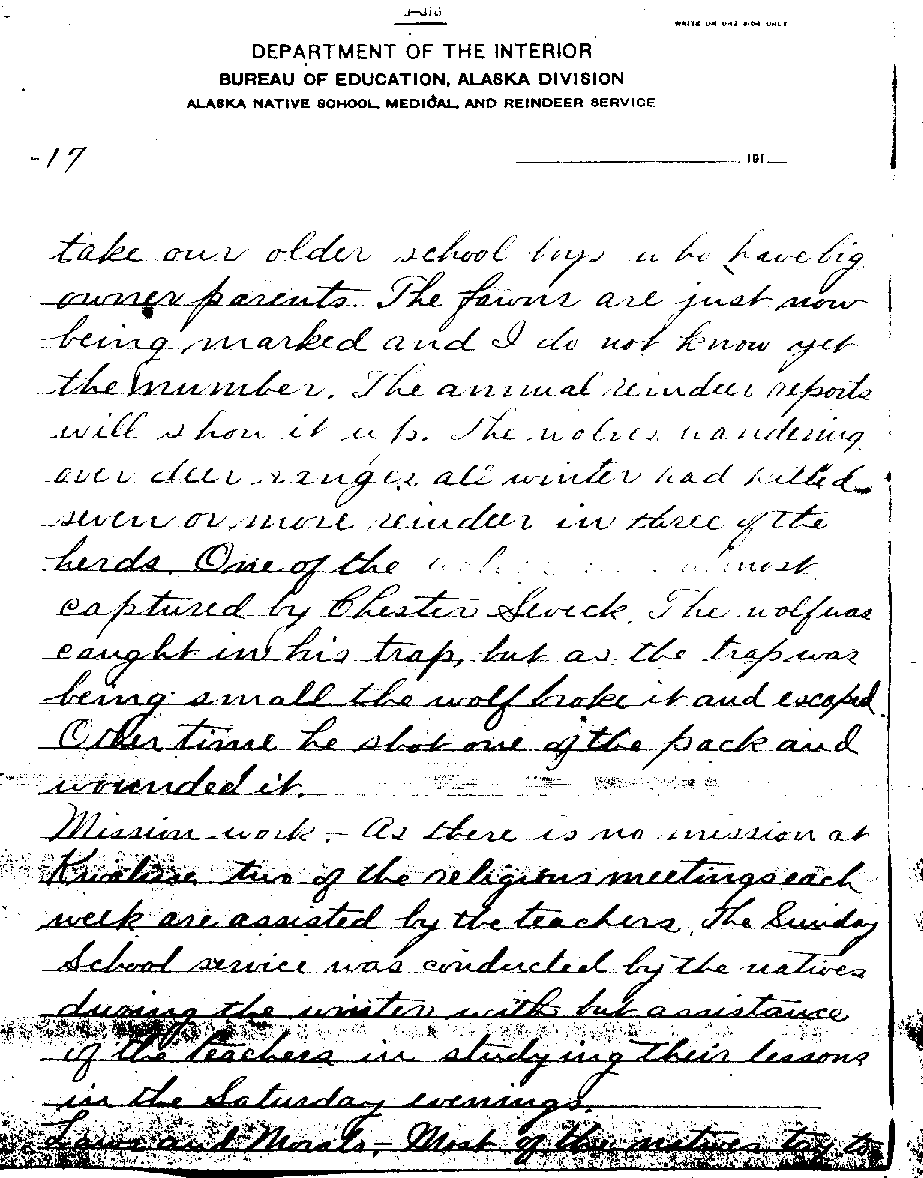 WRITE ON ONE SIDE ONLY
DEPARTMENT OF THE INTERIOR
BUREAU OF EDUCATION, ALASKA DIVISION
ALASKA NATIVE SCHOOL, MEDICAL, AND REINDEER SERVICE
-17
191
take our older school boys who have big
owner parents. The fawns are just now
being marked and I do not know yet
the number. The annual reindeer reports
will show it up. The wolves wandering
over deer ranges all winter had killed
seven or more reindeer in three of the
herds. One of the almost
captured by Chester Seveck. The wolf was
caught in his trap, but as the trap was
being small the wolf broke it and escaped.
Other time he shot one of the pack and
wounded it.
Mission work.- As there is no mission at
two of the religious meetings each
week are assisted by the teachers. The Sunday
School service was conducted by the natives
during the winter with but assistance
of the teachers in studying their lessons
in the Saturday evenings.
Laws and Morals,- Most of the natives try to